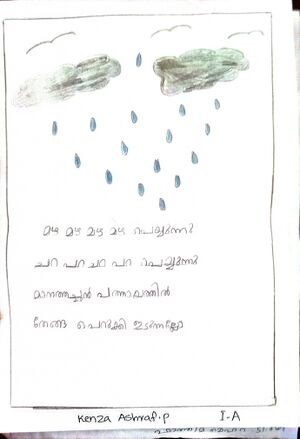 മഴ മഴ മഴ മഴ പെയ്യുന്നു
ചറ പറ ചറ പറ പെയ്യുന്നു
മാനത്തച്ഛൻ പത്തായത്തിൽ
തേങ്ങ പെറുക്കി ഇടുന്നല്ലോ
Kenza Ashraf.P I-A